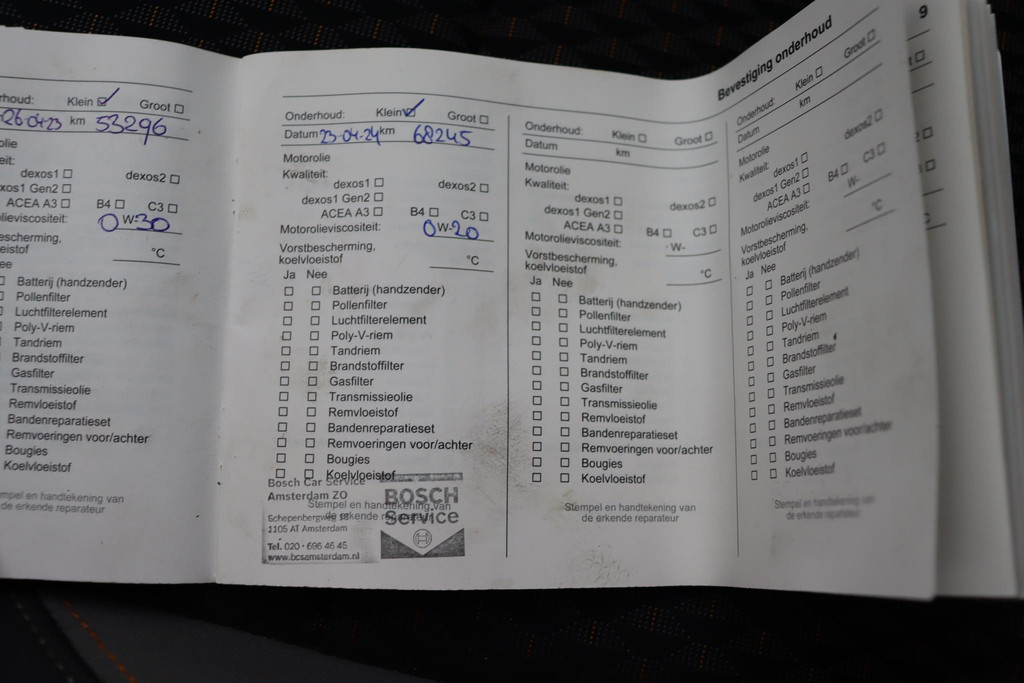 rhoud: Klein ☑ Groot ☐
-26-04-23 km 53296
olie
eit:
dexos1 ☐ dexos2 ☐
exos1 Gen2 ☐
ACEA A3 ☐ B4 ☐ C3 ☐
olieviscositeit: 0 W-30
escherming,
eistof °C
ee
Batterij (handzender)
Pollenfilter
Luchtfilterelement
Poly-V-riem
Tandriem
Brandstoffilter
Gasfilter
Transmissieolie
Remvloeistof
Bandenreparatieset
Remvoeringen voor/achter
Bougies
Koelvloeistof
empel en handtekening van
de erkende reparateur
Onderhoud: Klein ☑ Groot ☐
Datum 23-04-24 km 68245
Motorolie
Kwaliteit:
dexos1 ☐ dexos2 ☐
dexos1 Gen2 ☐
ACEA A3 ☐ B4 ☐ C3 ☐
Motorolieviscositeit: 0 W-20
Vorstbescherming,
koelvloeistof °C
Ja Nee
☐ ☐ Batterij (handzender)
☐ ☐ Pollenfilter
☐ ☐ Luchtfilterelement
☐ ☐ Poly-V-riem
☐ ☐ Tandriem
☐ ☐ Brandstoffilter
☐ ☐ Gasfilter
☐ ☐ Transmissieolie
☐ ☐ Remvloeistof
☐ ☐ Bandenreparatieset
☐ ☐ Remvoeringen voor/achter
☐ ☐ Bougies
☐ ☐ Koelvloeistof
Stempel en handtekening van
de erkende reparateur
Bosch Car Service
Amsterdam ZO
Schepenbergweg
1105 AT Amsterdam
Tel. 020 - 696 46 45
www.bcsamsterdam.nl
BOSCH
Service
Onderhoud: Klein ☐ Groot ☐
Datum km
Motorolie
Kwaliteit:
dexos1 ☐ dexos2 ☐
dexos1 Gen2 ☐
ACEA A3 ☐ B4 ☐ C3 ☐
Motorolieviscositeit: W-
Vorstbescherming,
koelvloeistof °C
Ja Nee
☐ ☐ Batterij (handzender)
☐ ☐ Pollenfilter
☐ ☐ Luchtfilterelement
☐ ☐ Poly-V-riem
☐ ☐ Tandriem
☐ ☐ Brandstoffilter
☐ ☐ Gasfilter
☐ ☐ Transmissieolie
☐ ☐ Remvloeistof
☐ ☐ Bandenreparatieset
☐ ☐ Remvoeringen voor/achter
☐ ☐ Bougies
☐ ☐ Koelvloeistof
Stempel en handtekening van
de erkende reparateur
Bevestiging onderhoud
Onderhoud: Klein ☐ Groot ☐
Datum km
Motorolie
Kwaliteit:
dexos1 ☐ dexos2 ☐
dexos1 Gen2 ☐
ACEA A3 ☐ B4 ☐ C3 ☐
Motorolieviscositeit: W-
Vorstbescherming,
koelvloeistof °C
Ja Nee
☐ ☐ Batterij (handzender)
☐ ☐ Pollenfilter
☐ ☐ Luchtfilterelement
☐ ☐ Poly-V-riem
☐ ☐ Tandriem
☐ ☐ Brandstoffilter
☐ ☐ Gasfilter
☐ ☐ Transmissieolie
☐ ☐ Remvloeistof
☐ ☐ Bandenreparatieset
☐ ☐ Remvoeringen voor/achter
☐ ☐ Bougies
☐ ☐ Koelvloeistof
Stempel en handtekening van
de erkende reparateur
9